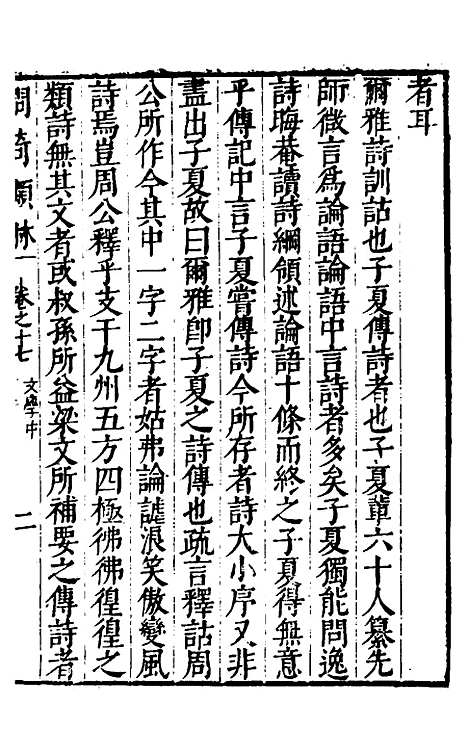 者耳
爾雅詩訓詁也子夏傳詩者也子夏輩六十人纂先
師微言爲論語論語中言詩者多矣子夏獨能問逸
詩晦菴讀詩綱領述論語十條而終之子夏得無意
乎傳記中言子夏嘗傳詩今所存者詩大小序又非
盡出子夏故曰爾雅卽子夏之詩傳也疏言釋詁周
公所作今其中一字二字者姑弗論謔浪笑傲變風
詩焉豈周公釋乎支干九州五方四極彿彿徨徨之
類詩無其文者或叔孫所益梁文所補要之傳詩者
問奇類林 卷之十七 文學中 二